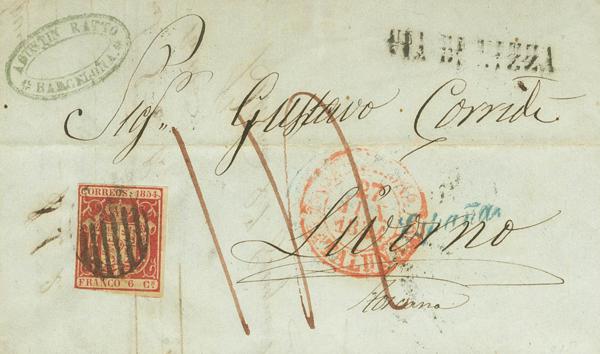 AGUSTIN RATTO
BARCELONA
VIA DI NIZZA
Sig.r Gustavo Corridi
CORREOS. 1854.
FRANCO 6 Cs
27
España
Livorno
Toscana